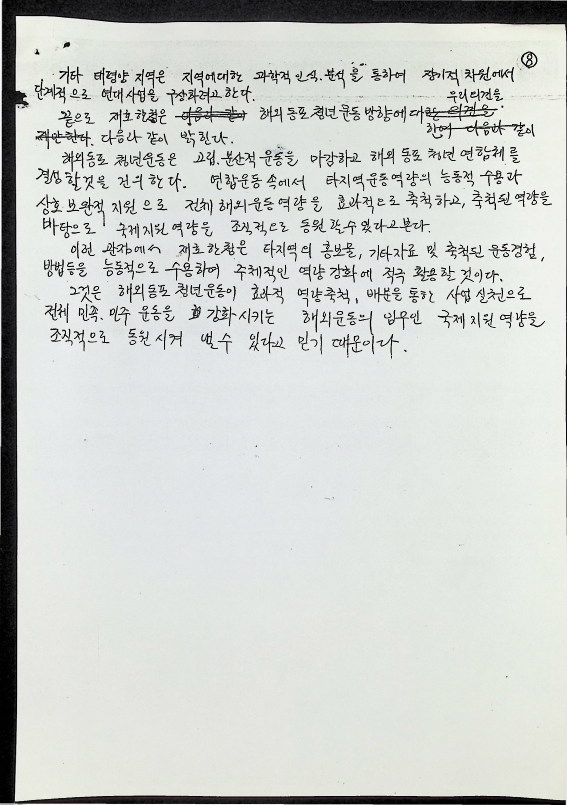 ⑧
기타 태평양 지역은 지역에대한 과학적 인식.분석을 통하여 장기적 차원에서
단계적으로 연대사업을 구상하려고 한다.
우리의견을
끝으로 재호한청은 다음과 같이 해외동포 청년운동방향에 대한 의견을
제안한다. 다음과 같이 밝힌다. 한여 다음과 같이
해외동포 청년운동은 고립.분산적 운동을 마감하고 해외동포 청년연합체를
결성할것을 건의한다. 연합운동 속에서 타지역운동역량의 능동적 수용과
상호보완적 지원으로 전체 해외운동역량을 효과적으로 축척하고, 축척된 역량을
바탕으로 국제지원역량을 조직적으로 동원할수있다고본다.
이런 관점에서 재호한청은 타지역의 홍보물, 기타자료 및 축척된 운동경험,
방법등을 능동적으로 수용하여 주체적인 역량강화에 적극 활용할 것이다.
그것은 해외동포 청년운동이 효과적 역량축척, 배분을 통한 사업실천으로
전체 민족.민주 운동을 강화시키는 해외운동의 임무인 국제지원역량을
조직적으로 동원시켜 낼수 있다고 믿기 때문이다.